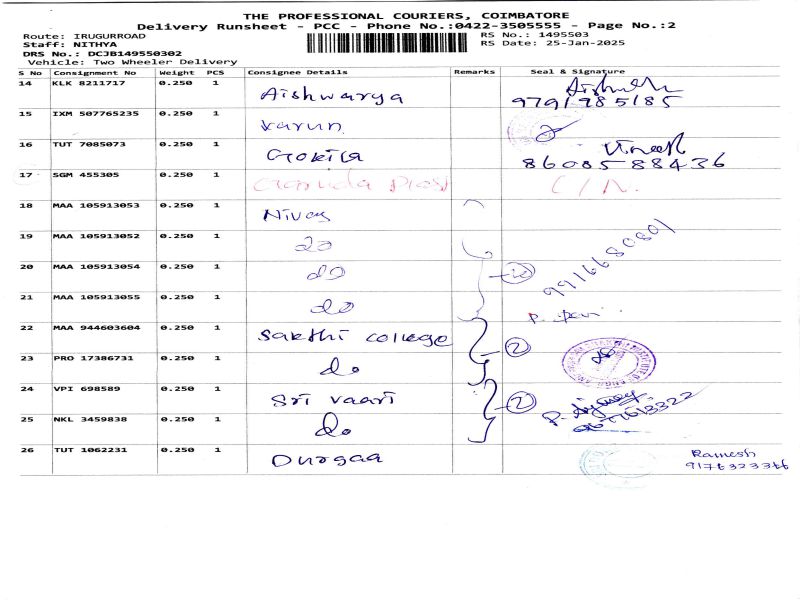 THE PROFESSIONAL COURIERS, COIMBATORE
Delivery Runsheet - PCC - Phone No.:0422-3505555 - Page No.:2
Route: IRUGURROAD RS No.: 1495503
Staff: NITHYA RS Date: 25-Jan-2025
DRS No.: DCJB149550302
Vehicle: Two Wheeler Delivery
S No Consignment No Weight PCS Consignee Details Remarks Seal & Signature
14 KLK 8211717 0.250 1 Aishwarya
9791985185
15 IXM 507765235 0.250 1 Varun
16 TUT 7085073 0.250 1 Gokila Vinesh
8608588436
17 SGM 455305 0.250 1
18 MAA 105913053 0.250 1
19 MAA 105913052 0.250 1 do
20 MAA 105913054 0.250 1 do 9916680801
21 MAA 105913055 0.250 1 do
22 MAA 944603604 0.250 1 Sakthi college 2
23 PRO 17386731 0.250 1 do
24 VPI 698589 0.250 1 Sri Vaari 2
25 NKL 3459838 0.250 1 do
26 TUT 1062231 0.250 1 Durgaa Ramesh
9176323366